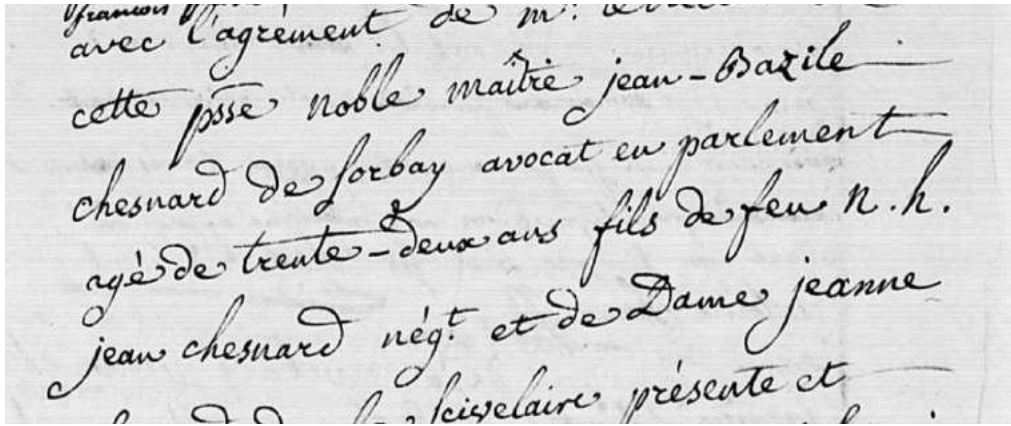 françois
avec l'agrément de m.r
cette psse noble maître jean-Bazile
chesnard de sorbay avocat en parlement
agé de trente-deux ans fils de feu n. h.
jean chesnard négt. et de Dame jeanne
présente et